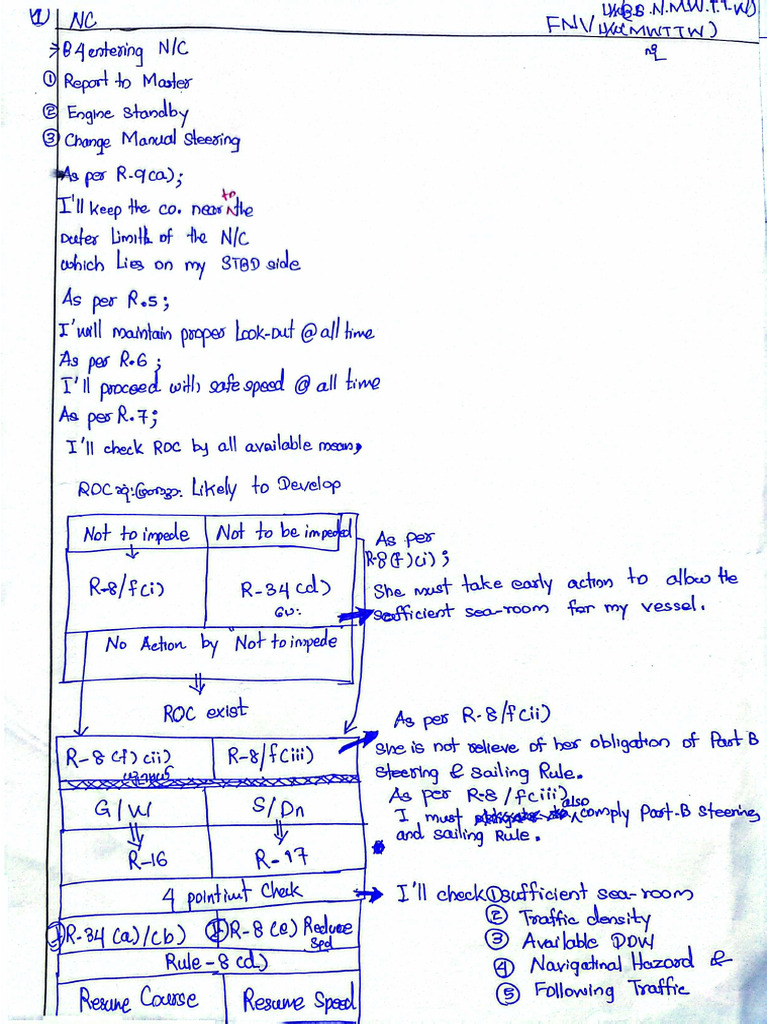 ① NC
FNV (MWTTW)
→ B4 entering N/C
① Report to Master
② Engine Standby
③ Change Manual Steering
As per R-9(a);
I'll keep the co. near to the
outer Limith of the N/C
which Lies on my STBD side
As per R.5;
I'will maintain proper Look-out @ all time
As per R.6;
I'll proceed with safe speed @ all time
As per R.7;
I'll check ROC by all available mean,
ROC Likely to Develop
Not to impede Not to be impeded
R-8/f(i) R-34(d)
As per
R-8(f)(i);
She must take early action to allow the
sufficient sea-room for my vessel.
No Action by "Not to impede
ROC exist
R-8(f)(ii) R-8/f(iii)
As per R-8/f(ii)
She is not relieve of her obligation of Part B
Steering & Sailing Rule.
G/W S/On
As per R-8/f(iii)
I must also comply Part-B Steering
and sailing Rule.
R-16 R-17
4 point check
I'll check ① sufficient sea-room
② Traffic density
③ Available DDW
④ Navigatinal Hazard &
⑤ Following Traffic
R-34(a)/(b) R-8(e) Reduce
Spd
Rule-8(d)
Resume Course Resume Speed